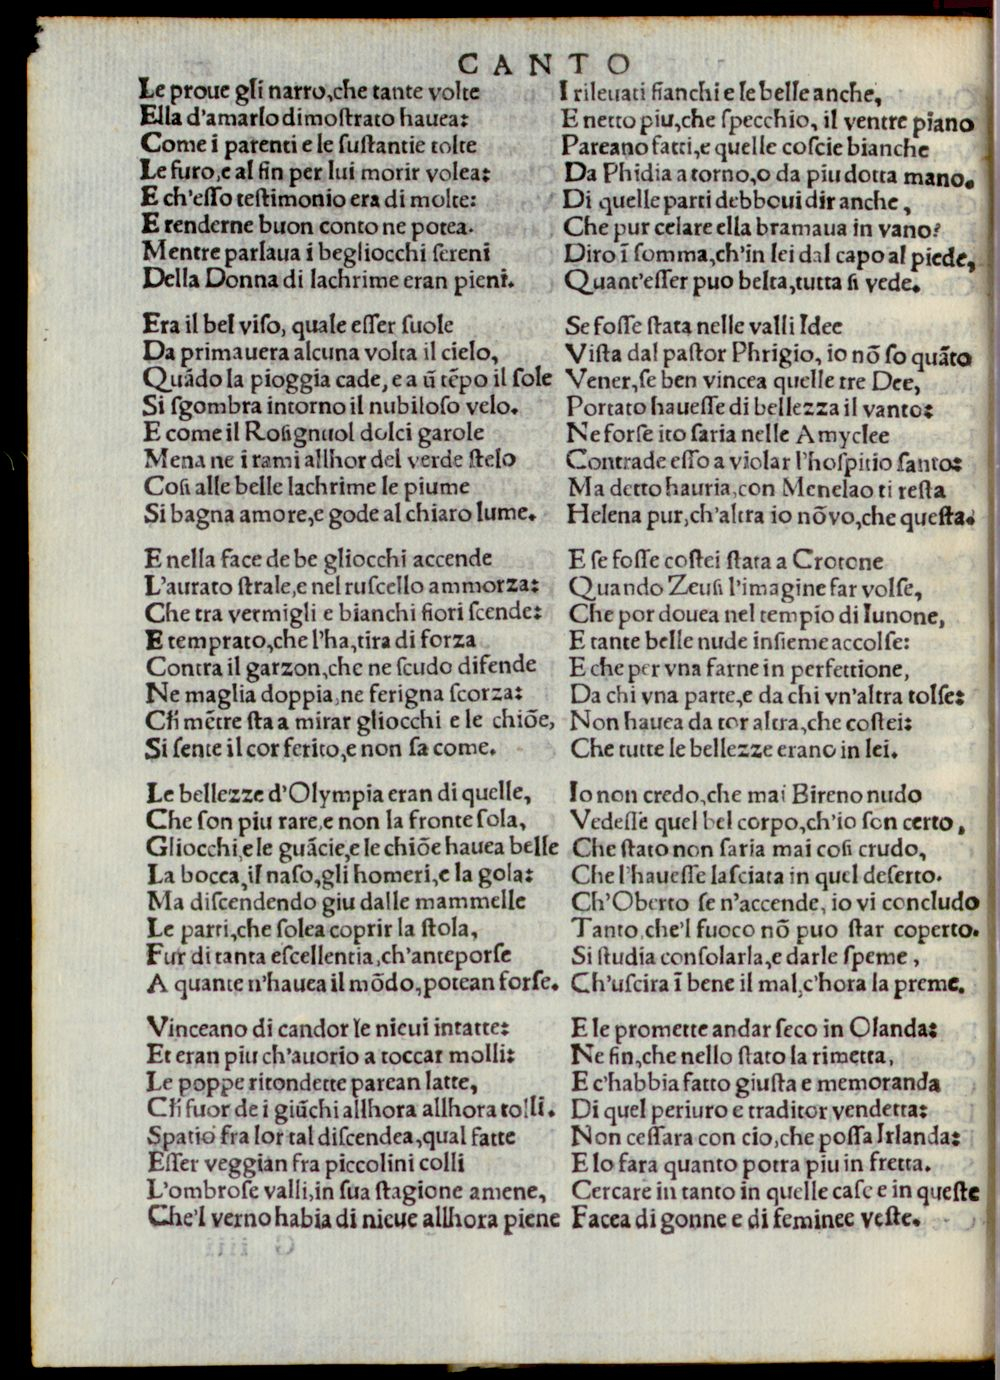 CANTO
Le proue gli narro, che tante volte
Ella d'amarlo dimoſtrato hauea:
Come i parenti e le ſuſtantie tolte
Le furo, e al fin per lui morir volea:
E ch'eſſo teſtimonio era di molte:
E renderne buon conto ne potea.
Mentre parlaua i begliocchi ſereni
Della Donna di lachrime eran pieni.
Era il bel viſo, quale eſſer ſuole
Da primauera alcuna volta il cielo,
Quãdo la pioggia cade, e a ũ tẽpo il ſole
Si ſgombra intorno il nubiloſo velo.
E come il Roſignuol dolci garole
Mena ne i rami allhor del verde ſtelo
Coſi alle belle lachrime le piume
Si bagna amore, e gode al chiaro lume.
E nella face de be gliocchi accende
L'aurato ſtrale, e nel ruſcello ammorza:
Che tra vermigli e bianchi fiori ſcende:
E temprato, che l'ha, tira di forza
Contra il garzon, che ne ſcudo difende
Ne maglia doppia, ne ferigna ſcorza:
Ch̃ mẽtre ſta a mirar gliocchi e le chiõe,
Si ſente il cor ferito, e non ſa come.
Le bellezze d'Olympia eran di quelle,
Che ſon piu rare, e non la fronte ſola,
Gliocchi, e le guãcie, e le chiõe hauea belle
La bocca, il naſo, gli homeri, e la gola:
Ma diſcendendo giu dalle mammelle
Le parti, che ſolea coprir la ſtola,
Fur di tanta eſcellentia, ch'anteporſe
A quante n'hauea il mõdo, potean forſe.
Vinceano di candor le nieui intatte:
Et eran piu ch'auorio a toccar molli:
Le poppe ritondette parean latte,
Ch̃ fuor de i giũchi allhora allhora tolli.
Spatio fra lor tal diſcendea, qual fatte
Eſſer veggian fra piccolini colli
L'ombroſe valli, in ſua ſtagione amene,
Che'l verno habia di nieue allhora piene
I rileuati fianchi e le belle anche,
E netto piu, che ſpecchio, il ventre piano
Pareano fatti, e quelle coſcie bianche
Da Phidia a torno, o da piu dotta mano.
Di quelle parti debboui dir anche,
Che pur celare ella bramaua in vano?
Diro ĩ ſomma, ch'in lei dal capo al piede,
Quant'eſſer puo belta, tutta ſi vede.
Se foſſe ſtata nelle valli Idee
Viſta dal paſtor Phrigio, io nõ ſo quãto
Vener, ſe ben vincea quelle tre Dee,
Portato haueſſe di bellezza il vanto:
Ne forſe ito ſaria nelle Amyclee
Contrade eſſo a violar l'hoſpitio ſanto:
Ma detto hauria, con Menelao ti reſta
Helena pur, ch'altra io nõ vo, che queſta.
E ſe foſſe coſtei ſtata a Crotone
Quando Zeuſi l'imagine far volſe,
Che por douea nel tempio di Iunone,
E tante belle nude inſieme accolſe:
E che per vna farne in perfettione,
Da chi vna parte, e da chi vn'altra tolſe:
Non hauea da tor altra, che coſtei:
Che tutte le bellezze erano in lei.
Io non credo, che mai Bireno nudo
Vedeſſe quel bel corpo, ch'io ſon certo,
Che ſtato non ſaria mai coſi crudo,
Che l'haueſſe laſciata in quel deſerto.
Ch'Oberto ſe n'accende, io vi concludo
Tanto, che'l fuoco nõ puo ſtar coperto.
Si ſtudia conſolarla, e darle ſpeme,
Ch'uſcira ĩ bene il mal, c'hora la preme.
E le promette andar ſeco in Olanda:
Ne fin, che nello ſtato la rimetta,
E c'habbia fatto giuſta e memoranda
Di quel periuro e traditor vendetta:
Non ceſſara con cio, che poſſa Irlanda:
E lo fara quanto potra piu in fretta.
Cercare in tanto in quelle caſe e in queſte
Facea di gonne e di feminee veſte.